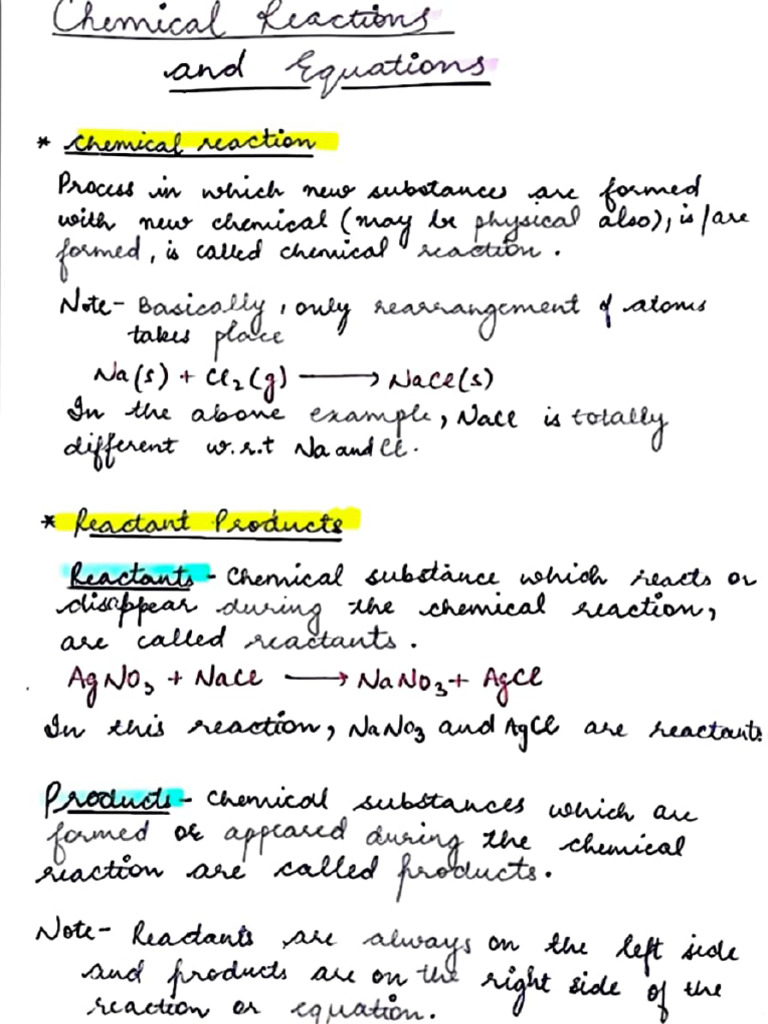 Chemical Reactions
and Equations
* Chemical reaction
Process in which new substances are formed
with new chemical (may be physical also), is/are
formed, is called chemical reaction.
Note- Basically, only rearrangement of atoms
takes place
Na(s) + Cl₂(g) ⟶ NaCl(s)
In the above example, NaCl is totally
different w.r.t Na and Cl.
* Reactant Products
Reactants - Chemical substance which reacts or
disappear during the chemical reaction,
are called reactants.
AgNO₃ + NaCl ⟶ NaNO₃ + AgCl
In this reaction, NaNO₃ and AgCl are reactants
Products - Chemical substances which are
formed or appeared during the chemical
reaction are called products.
Note- Reactants are always on the left side
and products are on the right side of the
reaction or equation.